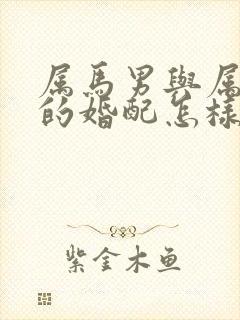 属馬男與属
的婚配怎樣
紫金木鱼